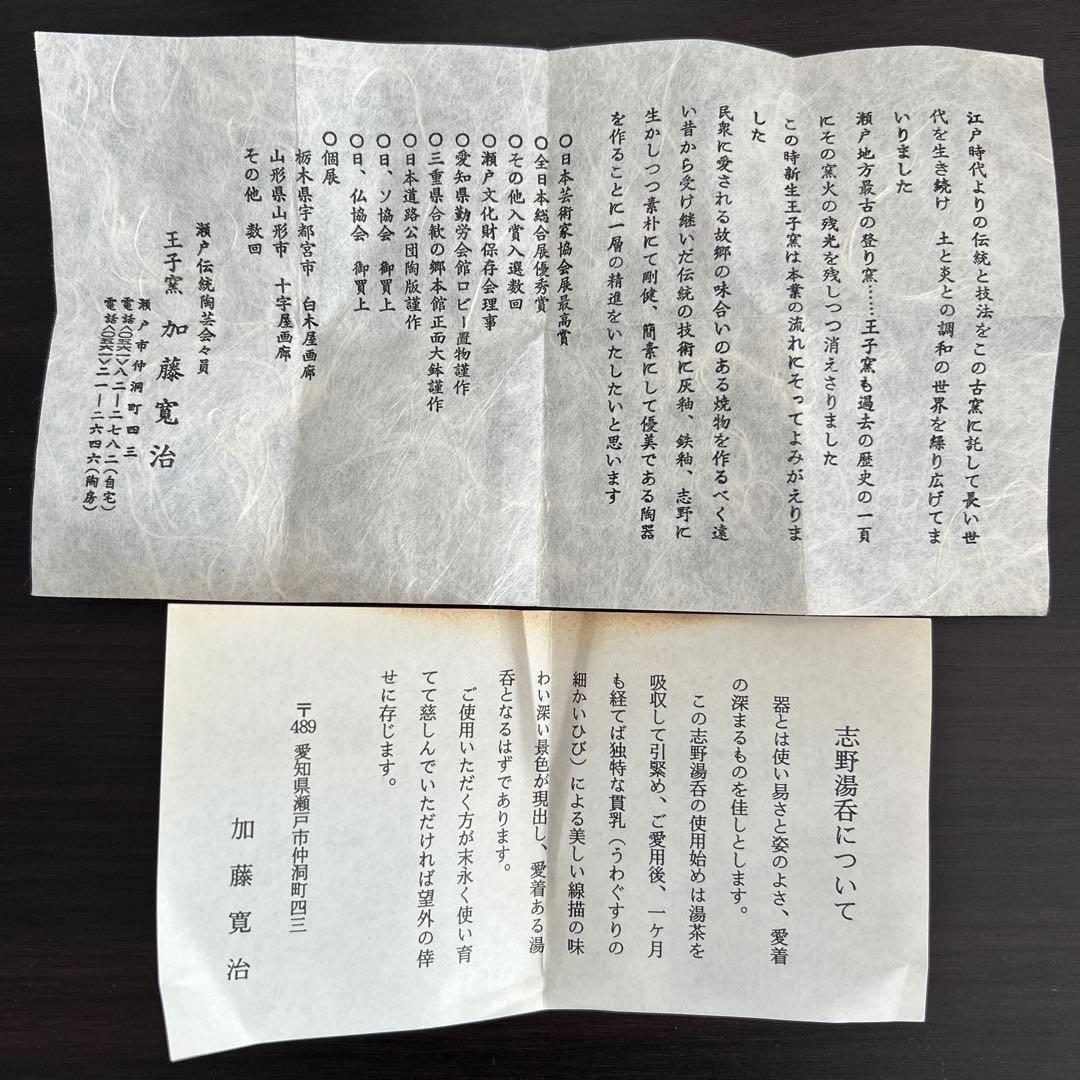 江戸時代よりの伝統と技法をこの古窯に託して長い世
代を生き続け　土と炎との調和の世界を繰り広げてま
いりました
瀬戸地方最古の登り窯……王子窯も過去の歴史の一頁
にその窯火の残光を残しつつ消えさりました
この時新生王子窯は本業の流れにそってよみがえりま
した
民衆に愛される故郷の味合いのある焼物を作るべく遠
い昔から受け継いだ伝統の技術に灰釉、鉄釉、志野に
生かしつつ素朴にて剛健、簡素にして優美である陶器
を作ることに一層の精進をいたしたいと思います
〇日本芸術家協会展最高賞
〇全日本総合展優秀賞
〇その他入賞入選数回
〇瀬戸文化財保存会理事
〇愛知県勤労会館ロビー置物謹作
〇三重県合歓の郷本館正面大鉢謹作
〇日本道路公団陶版謹作
〇日、ソ協会　御買上
〇日、仏協会　御買上
〇個展
栃木県宇都宮市　白木屋画廊
山形県山形市　十字屋画廊
その他　数回
瀬戸伝統陶芸会々員
王子窯　加藤寛治
瀬戸市仲洞町四三
電話〈〇五六一〉八二―二七八二(自宅)
電話〈〇五六一〉二一―二六四六(陶房)
志野湯呑について
器とは使い易さと姿のよさ、愛着
の深まるものを佳しとします。
この志野湯呑の使用始めは湯茶を
吸収して引緊め、ご愛用後、一ヶ月
も経てば独特な貫乳（うわぐすりの
細かいひび）による美しい線描の味
わい深い景色が現出し、愛着ある湯
呑となるはずであります。
ご使用いただく方が末永く使い育
てて慈しんでいただければ望外の倖
せに存じます。
〒489 愛知県瀬戸市仲洞町四三
加藤寛治